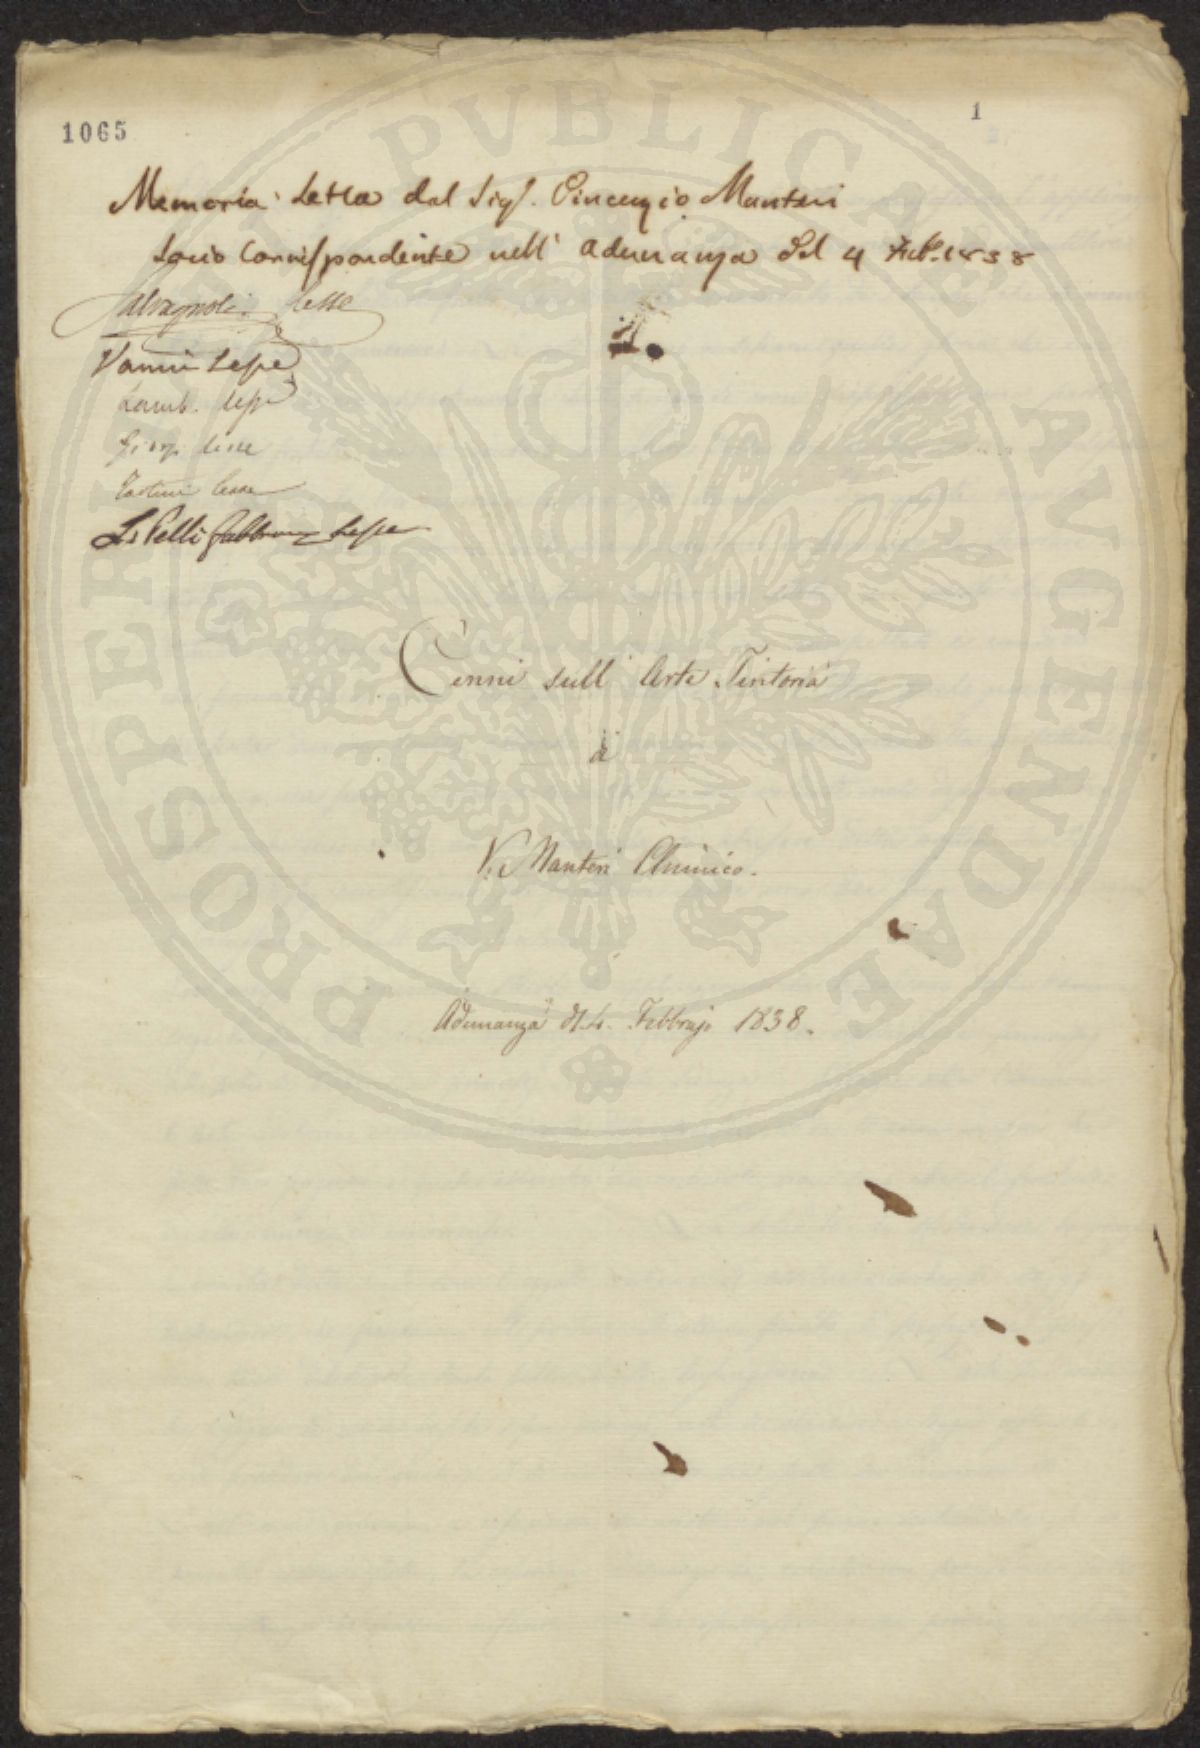 1065
1
Memoria letta dal Sigr. Vincenzio Manteri
Socio Corrispondente nell' adunanza del 4 Feb. 1838
Salvagnoli lesse
Vannii Lesse
Lamb. lesse
Giorgi lesse
Tartini lesse
Ls Pelli Fabbroni Lesse
Cenni sull' Arte Tintoria
di
V. Manteri Chimico.
Adunanza del 4. Febbrajo 1838.
PROSPERITATI PVBLICAE AVGENDAE